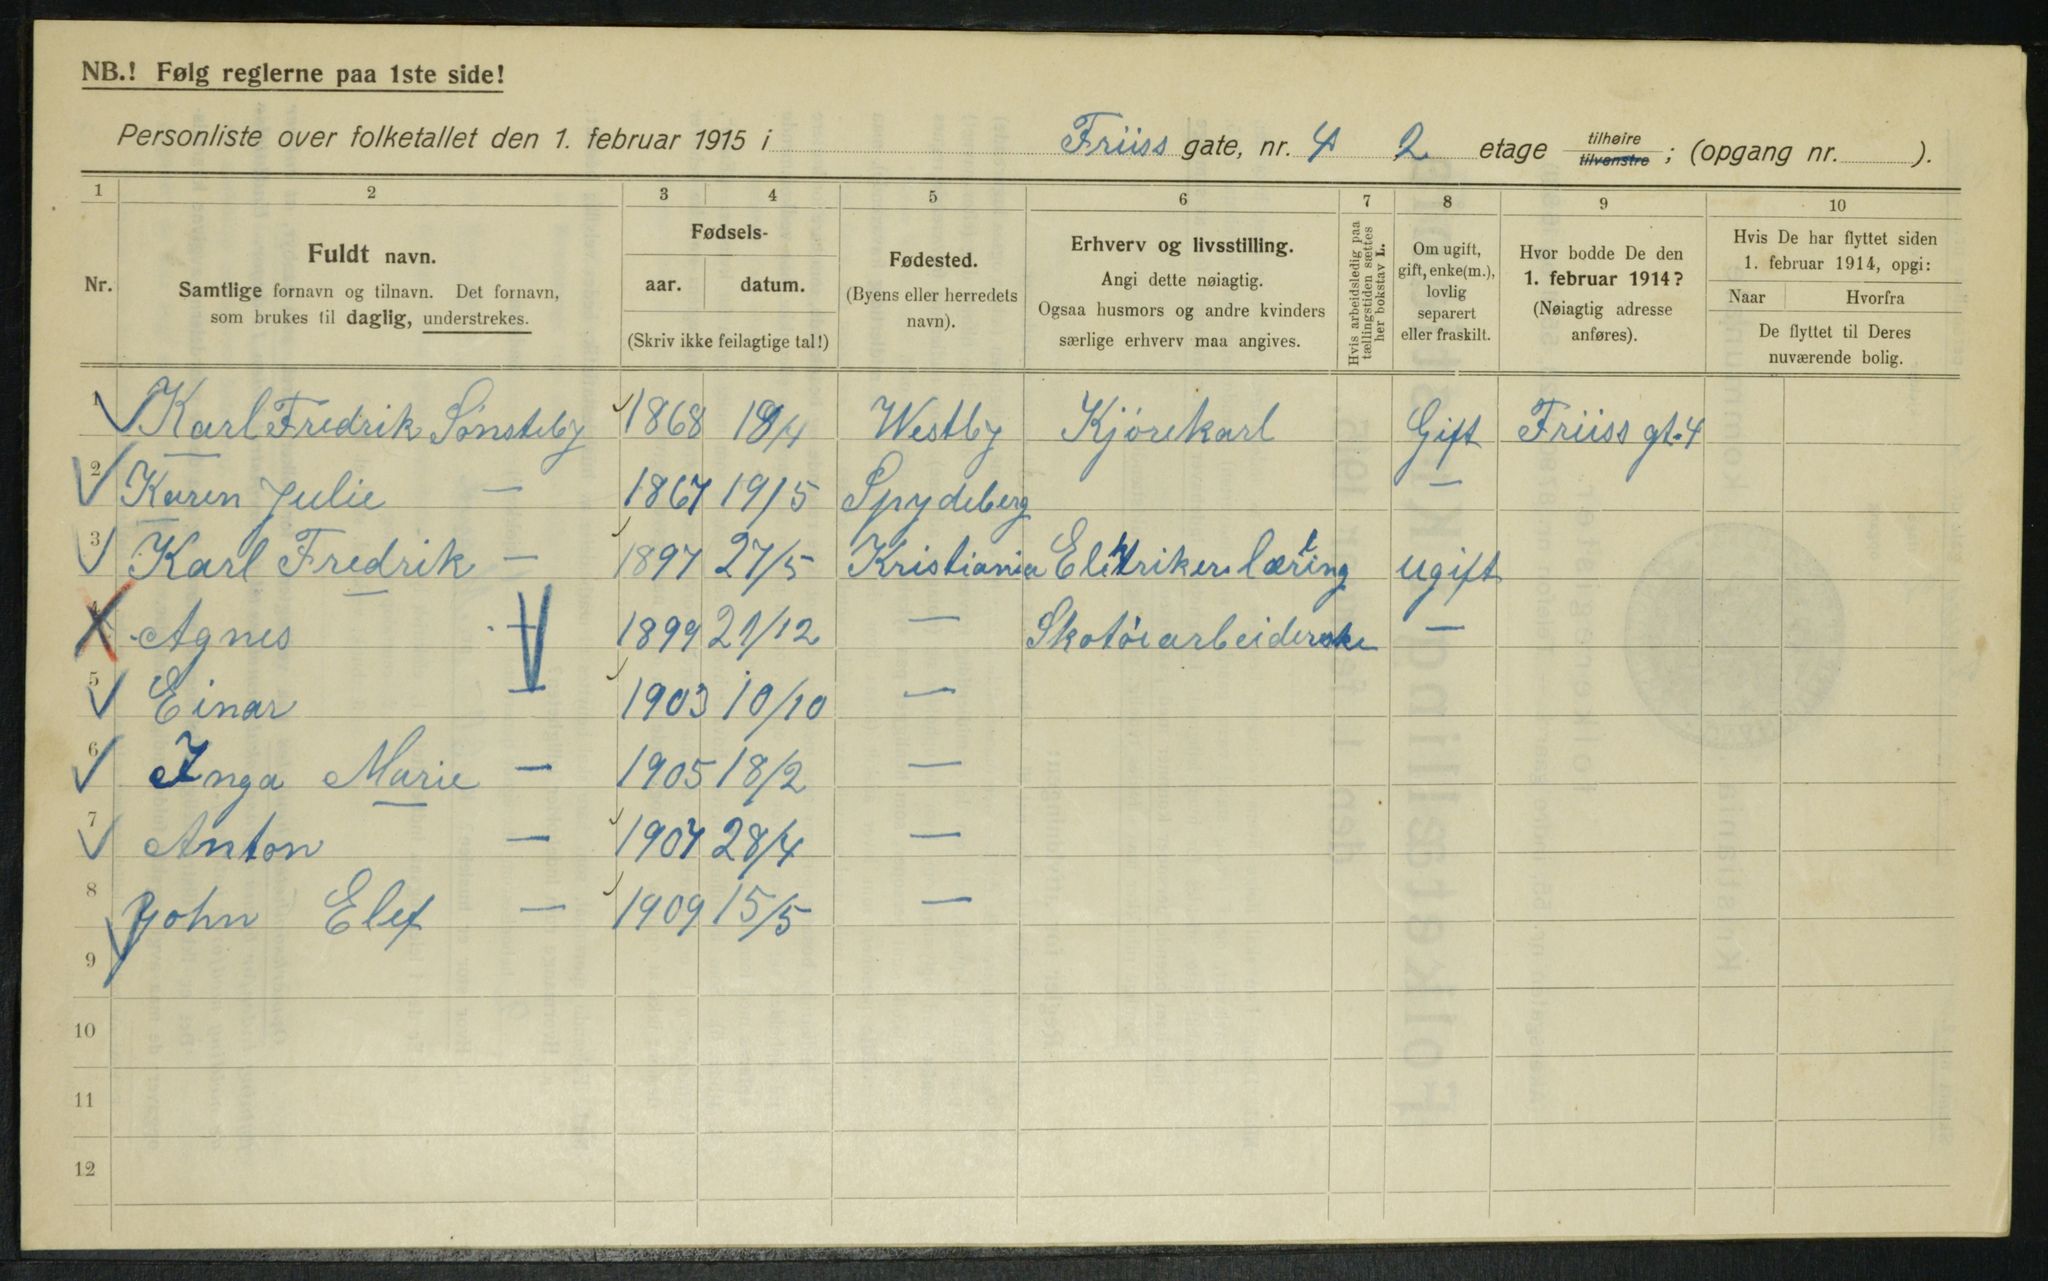 NB.! Følg reglerne paa 1ste side!
Personliste over folketallet den 1. februar 1915 i Friiss gate, nr. 4 2 etage tilhøire tilvenstre; (opgang nr. ).
1 2 3 4 5 6 7 8 9 10
Nr.
Fuldt navn.
Samtlige fornavn og tilnavn. Det fornavn,
som brukes til daglig, understrekes.
Fødsels-
aar. datum.
(Skriv ikke feilagtige tal!)
Fødested.
(Byens eller herredets
navn).
Erhverv og livsstilling.
Angi dette nøiagtig.
Ogsaa husmors og andre kvinders
særlige erhverv maa angives.
Hvis arbeidsledig paa
tællingstiden sættes
her bokstav L.
Om ugift,
gift, enke(m.),
lovlig
separert
eller fraskilt.
Hvor bodde De den
1. februar 1914?
(Nøiagtig adresse
anføres).
Hvis De har flyttet siden
1. februar 1914, opgi:
Naar Hvorfra
De flyttet til Deres
nuværende bolig.
1 Karl Fredrik Sønsteby 1868 /4 Westby Kjørekarl Gift Friiss gt. 4
2 Karen Julie — 1867 19/5 Spydeberg —
3 Karl Fredrik — 1897 27/5 Kristiania Elektriker lærling ugift
4 Agnes — 1899 21/12 — Skotøiarbeiderske —
5 Einar — 1903 10/10 —
6 Inga Marie — 1905 18/2 —
7 Anton — 1907 28/4 —
8 John Elef — 1909 15/5 —
9
10
11
12